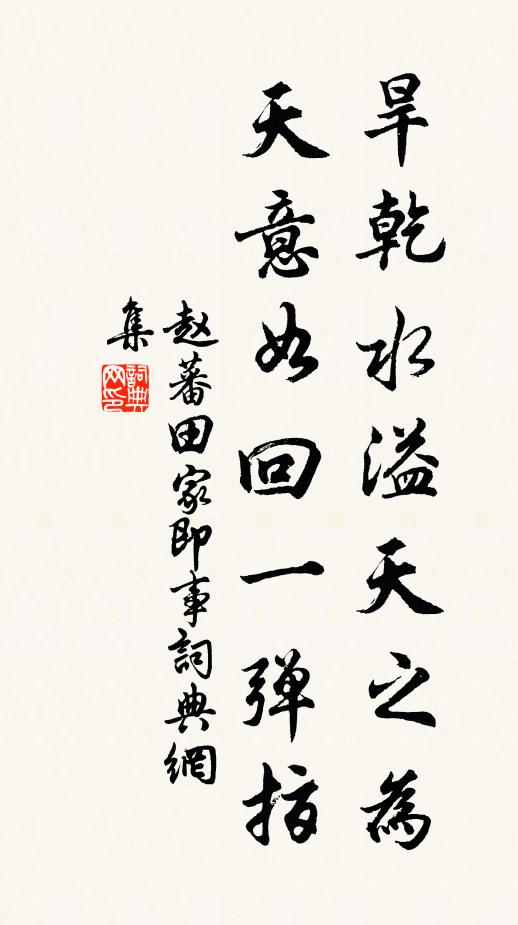 旱乾水溢天之為
天意如回一弹指
赵蕃田家即事詞典網
集
詞典
网印